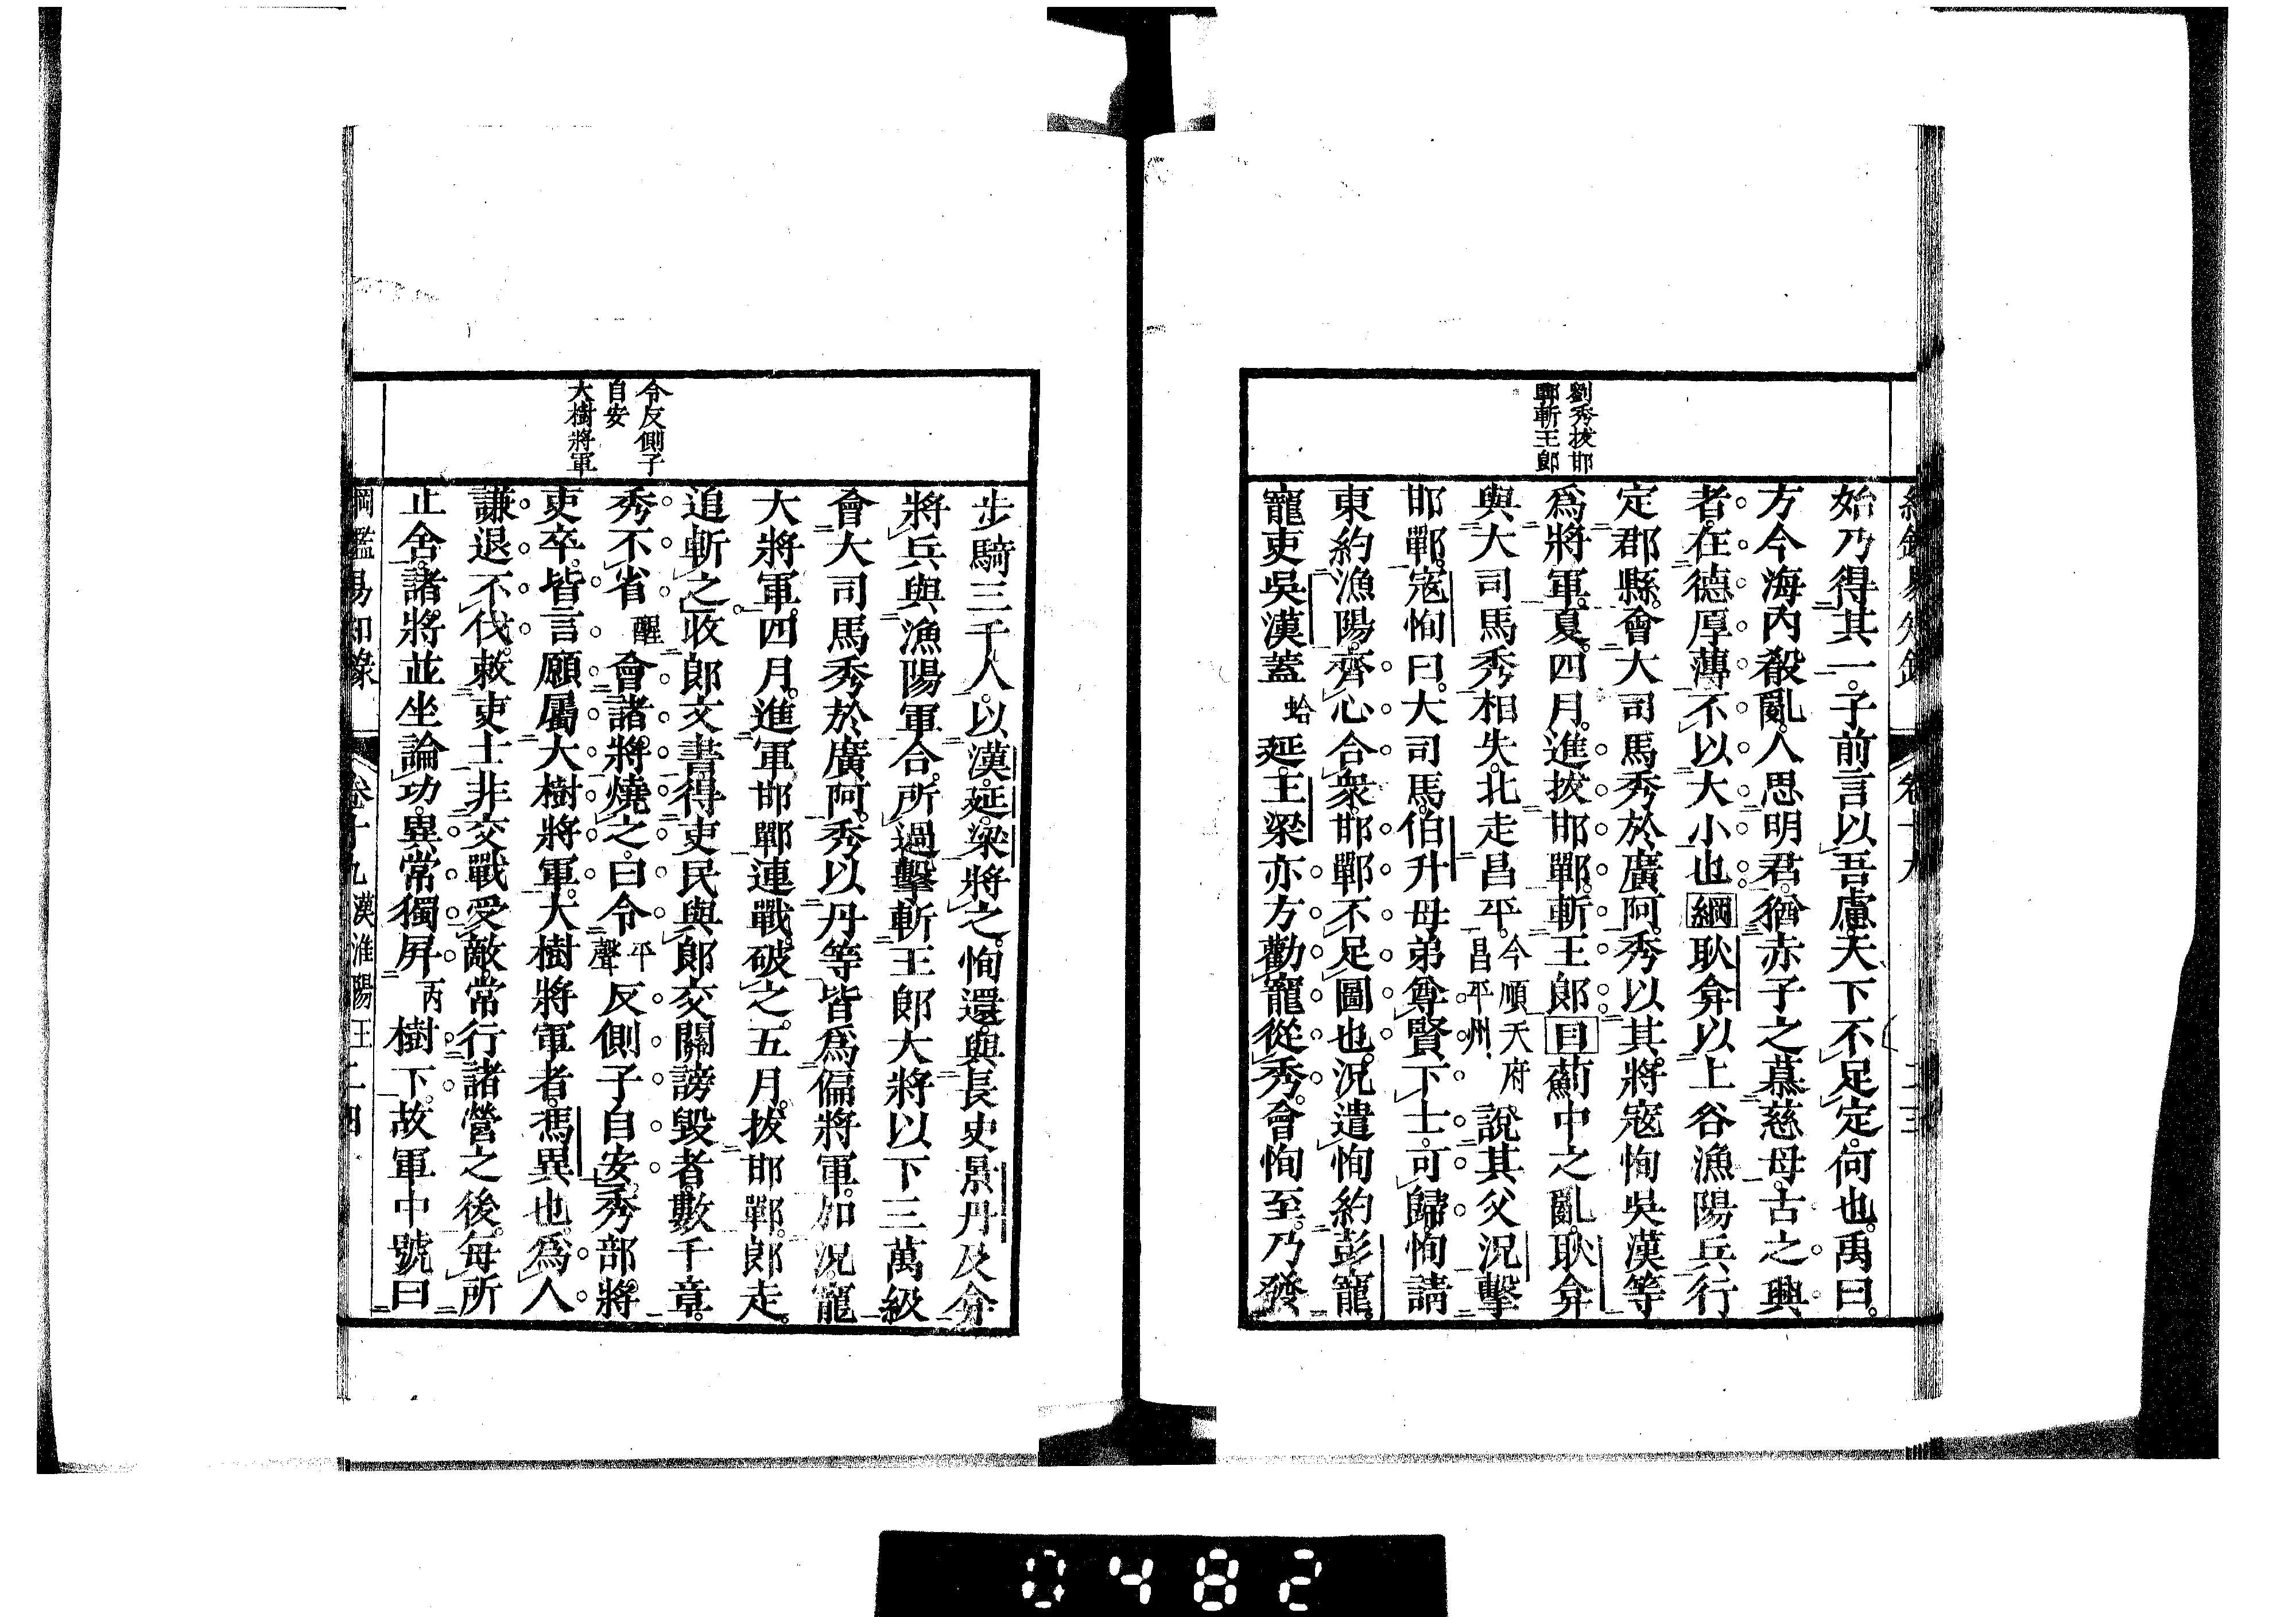 劉秀拔邯
鄲斬王郎
始乃得其一。子前言以吾慮天下不足定。何也。禹曰。
方今海內殽亂。人思明君。猶赤子之慕慈母。古之興
者。在德厚薄。不以大小也綱耿弇以上谷漁陽兵。行
定郡縣。會大司馬秀於廣阿。秀以其將寇恂吳漢等
爲將軍。夏。四月。進拔邯鄲。斬王郎目薊中之亂。耿弇
與大司馬秀相失。北走昌平。今順天府昌平州。說其父況擊
邯鄲。寇恂曰。大司馬。伯升母弟。尊賢下士。可歸。恂請
東約漁陽。齊心合衆。邯鄲不足圖也。況遣恂約彭寵。
寵吏吳漢蓋蛤延。王梁亦方勸寵從秀。會恂至。乃發
卷十九
二三
令反側子
自安
大樹將軍
步騎三千人。以漢延梁將之。恂還。與長史景丹及弇
將兵與漁陽軍合。所過擊斬王郎大將以下三萬級
會大司馬秀於廣阿。秀以丹等皆爲偏將軍。加況寵
大將軍。四月。進軍邯鄲連戰。破之。五月。拔邯鄲。郎走。
追斬之。收郎文書得吏民與郎交關謗毀者。數千章。
秀不省醒會諸將。燒之。曰令平聲反側子自安。秀部將
吏卒。皆言願屬大樹將軍。大樹將軍者。馮異也。爲人
謙退不伐。敕吏士非交戰受敵。常行諸營之後。每所
止舍。諸將並坐論功。異常獨屏丙樹下。故軍中號曰
綱鑑易知錄
卷十九漢淮陽王
二四
0482